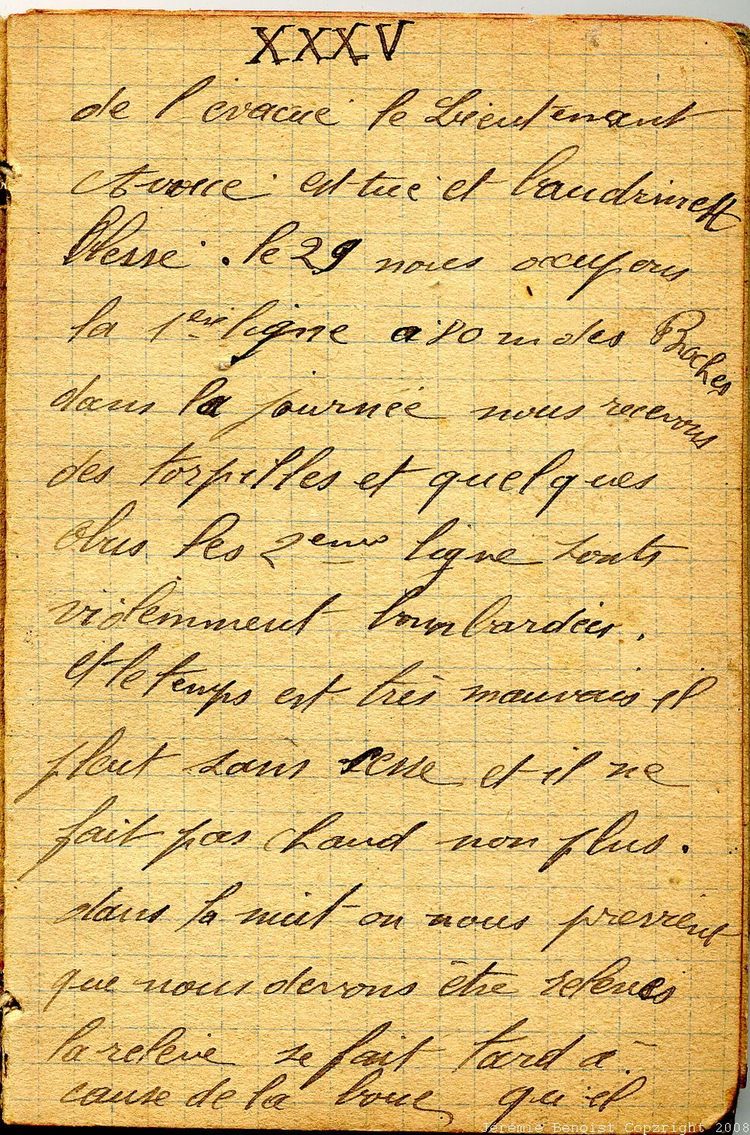 XXXV
de l'évacué le Lieutenant
est tué et Vaudrinett
blessé. le 29 nous occupons
la 1ere ligne a 80 m des Boches
dans la journée nous recevons
des torpilles et quelques
obus les 2eme ligne sonts
violemment bombardées.
et le temps est très mauvais il
pleut sans cesse et il ne
fait pas chaud non plus.
dans la nuit on nous previent
que nous devons être relevés
la relève se fait tard à
cause de la boue qu'il
Jeremie Benoist Copyright 2008